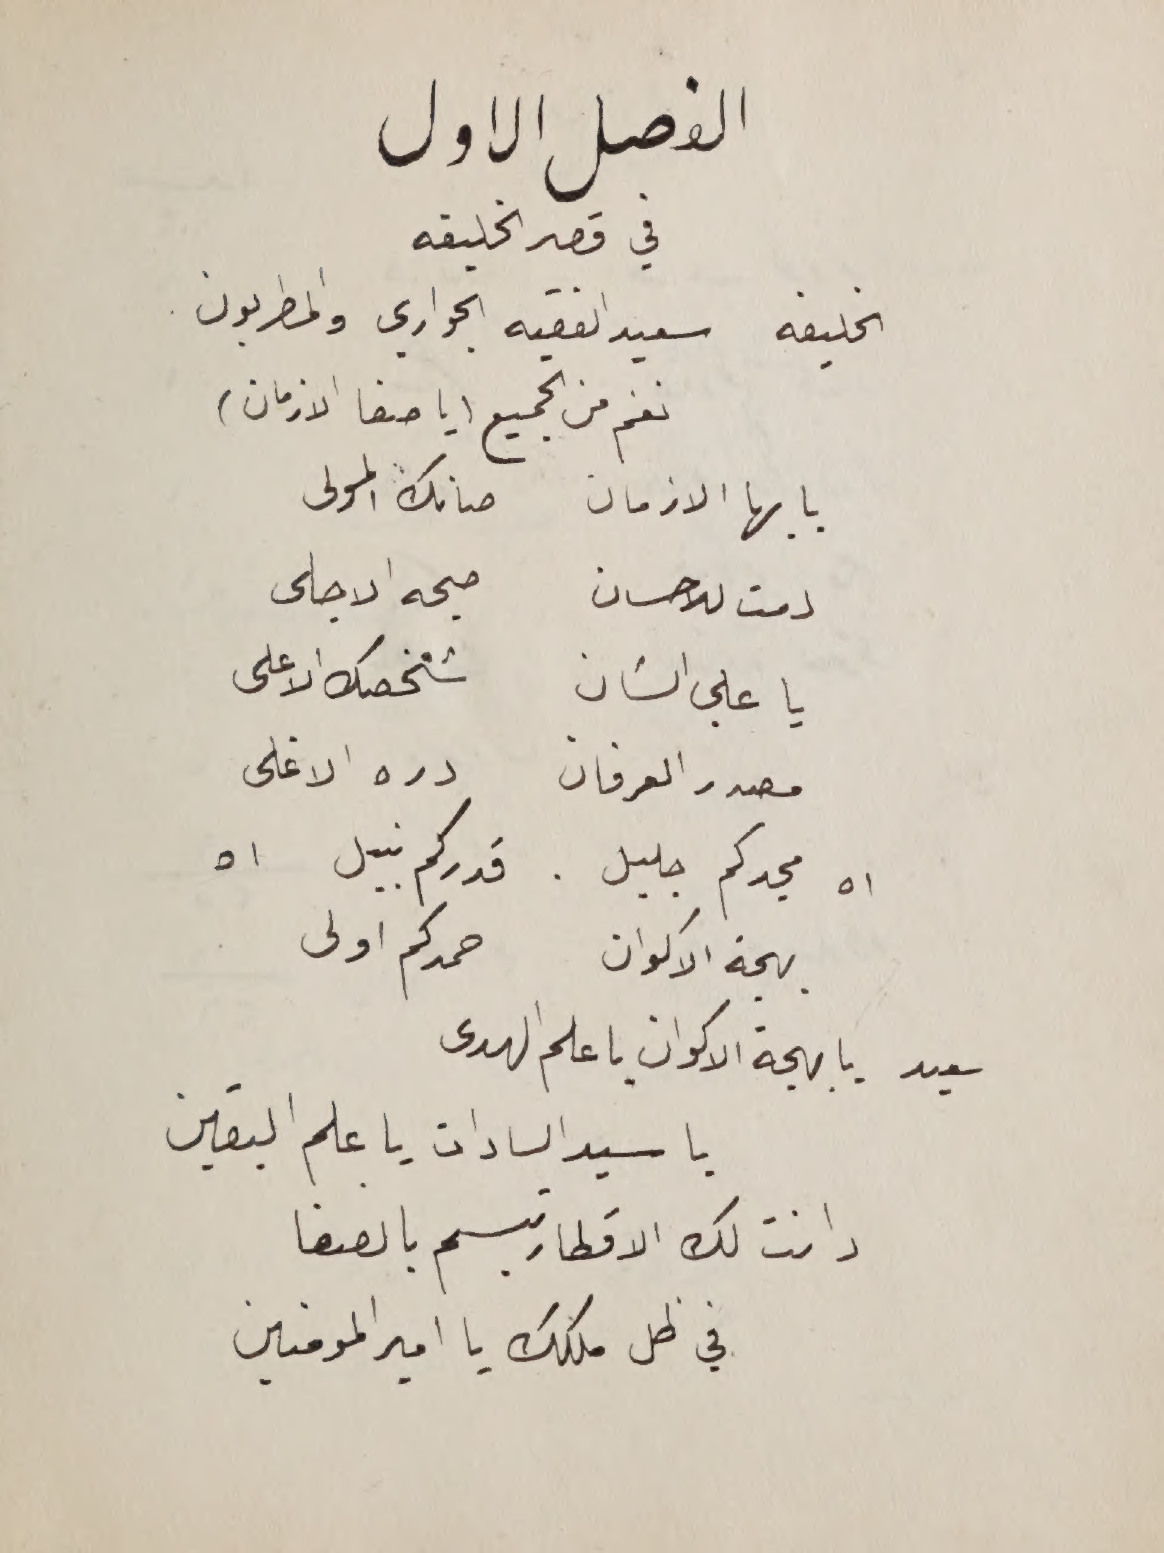 الفصل الاول
في قصر الخليفه
الخليفه سعيد الفقيه الجواري والمطربون
نغم من الجميع (يا صفا الازمان)
يا بها الازمان صانك المولى
دمت للاحسان صبحه الاجلى
يا علي الشان شخصك الاعلى
مصدر العرفان دره الاغلى
اه مجدكم جليل . قدركم نبيل اه
بهجة الاكوان حمدكم اولى
سعيد يا بهجة الاكوان يا علم الهدى
يا سيد السادات يا علم اليقين
دانت لك الاقطار تبسم بالصفا
في ظل ملكك يا امير المومنين